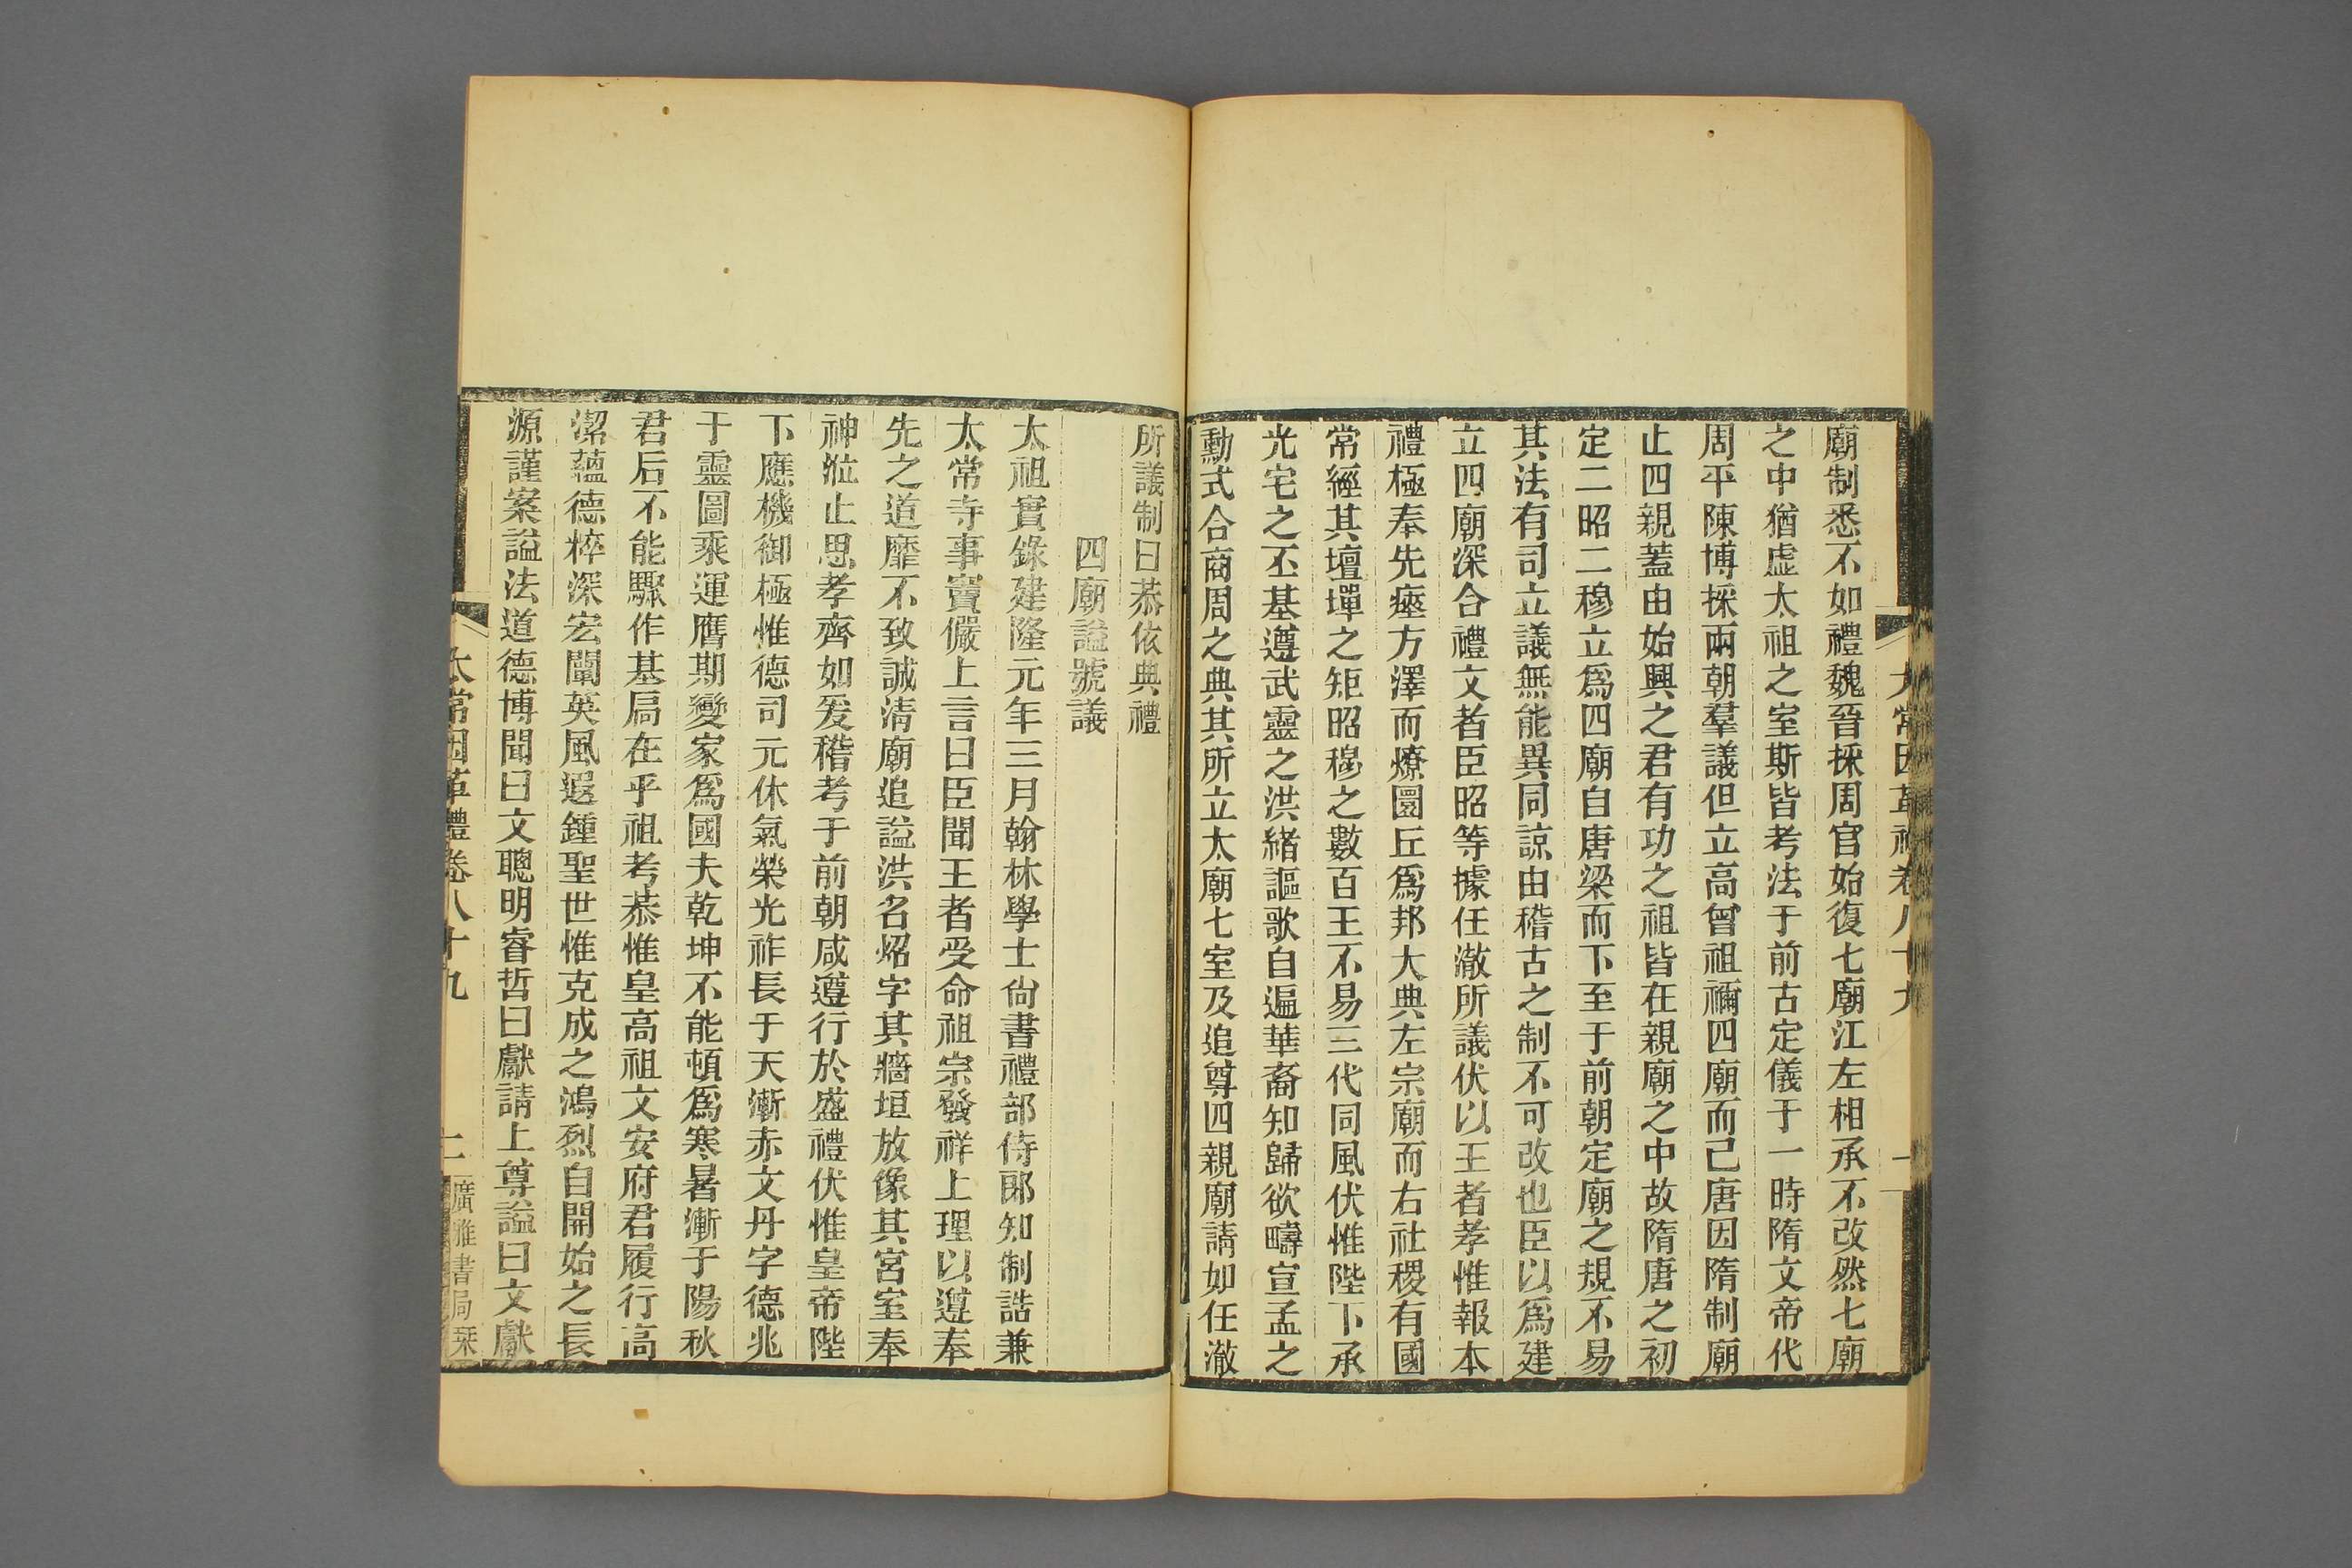 廟制悉不如禮魏晉採周官始復七廟江左相承不改然七廟
之中猶虛太祖之室斯皆考法于前古定儀于一時隋文帝代
周平陳博採兩朝羣議但立高曾祖禰四廟而已唐因隋制廟
止四親蓋由始興之君有功之祖皆在親廟之中故隋唐之初
定二昭二穆立爲四廟自唐梁而下至于前朝定廟之規不易
其法有司立議無能異同諒由稽古之制不可改也臣以爲建
立四廟深合禮文者臣昭等據任澈所議伏以王者孝惟報本
禮極奉先瘞方澤而燎圜丘爲邦大典左宗廟而右社稷有國
常經其壇墠之矩昭穆之數百王不易三代同風伏惟陛下承
光宅之丕基遵武靈之洪緒謳歌自遍華裔知歸欲疇宣孟之
勳式合商周之典其所立太廟七室及追尊四親廟請如任澈
所議制曰恭依典禮
四廟謚號議
太祖實錄建隆元年三月翰林學士尙書禮部侍郎知制誥兼
太常寺事竇儼上言曰臣聞王者受命祖宗發祥上理以遵奉
先之道靡不致誠清廟追謚洪名炤字其牆垣放像其宮室奉
神涖止思孝齊如爰稽考于前朝咸遵行於盛禮伏惟皇帝陛
下應機御極惟德司元休氣榮光祚長于天漸赤文丹字德兆
于靈圖乘運膺期變家爲國夫乾坤不能頓爲寒暑漸于陽秋
君后不能驟作基扃在乎祖考恭惟皇高祖文安府君履行高
潔蘊德粹深宏闡英風遐鍾聖世惟克成之鴻烈自開始之長
源謹案謚法道德博聞曰文聰明睿哲曰獻請上尊謚曰文獻
太常因革禮卷八十九
二
廣雅書局栞